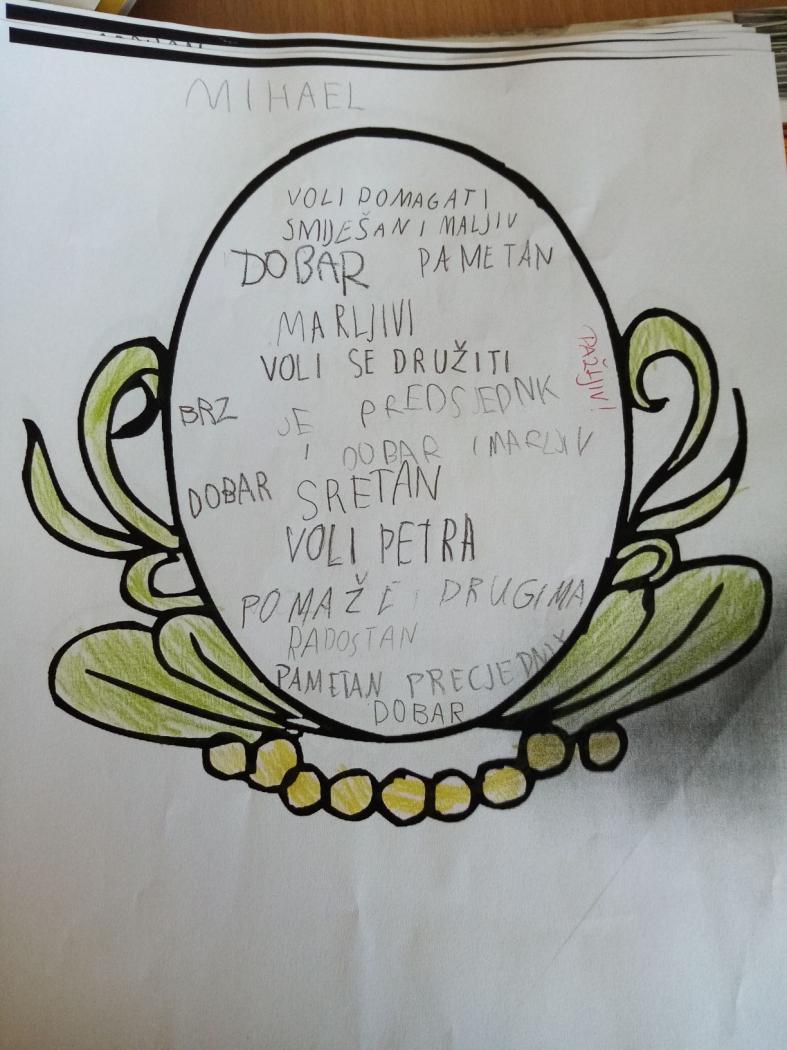 MIHAEL
VOLI POMAGATI
SMIJEŠAN I MALJIV
DOBAR PAMETAN
MARLJIVI
VOLI SE DRUŽITI
PAŽLJIV!
BRZ JE PREDSJEDNK
I DOBAR I MARLJIV
DOBAR SRETAN
VOLI PETRA
POMAŽE DRUGIMA
RADOSTAN
PAMETAN PRECJEDNIK
DOBAR